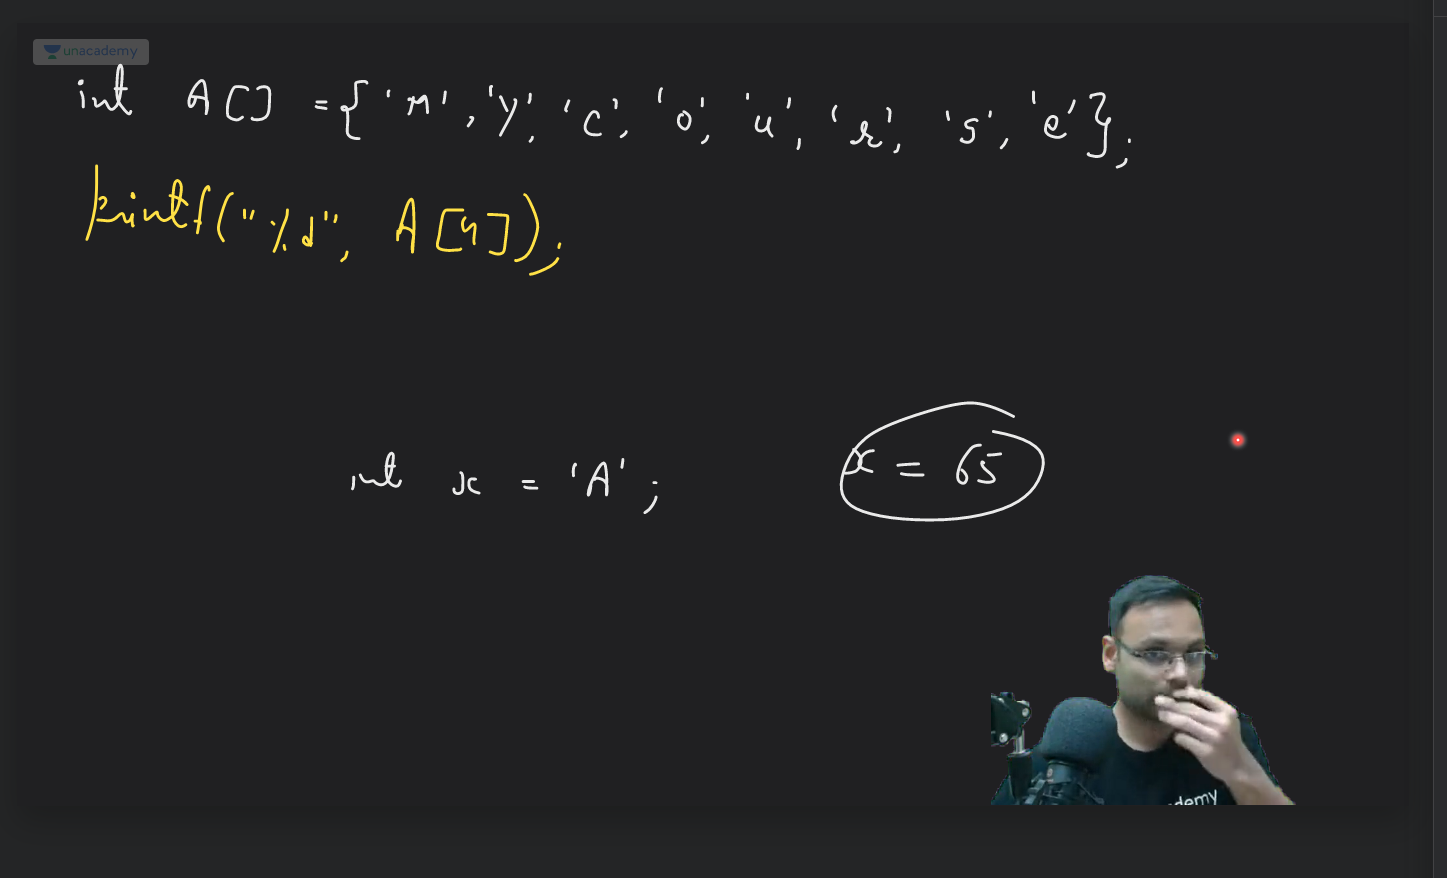 unacademy
int A[] = {'M', 'y', 'c', 'o', 'u', 'r', 's', 'e'};
printf("%d", A[4]);
int x = 'A'; x = 65
demy